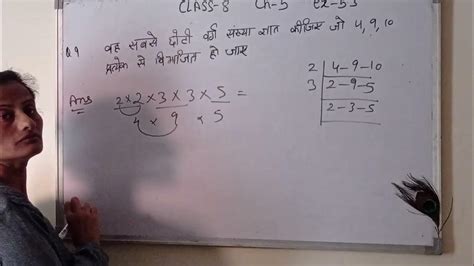 CLASS-8 Ch-5 ex-5.3
Q 9 वह सबसे छोटी वर्ग संख्या ज्ञात कीजिए जो 4, 9, 10
प्रत्येक से विभाजित हो जाए
Ans 2 × 2 × 3 × 3 × 5 =
4 × 9 × 5
2 | 4-9-10
3 | 2-9-5
2-3-5